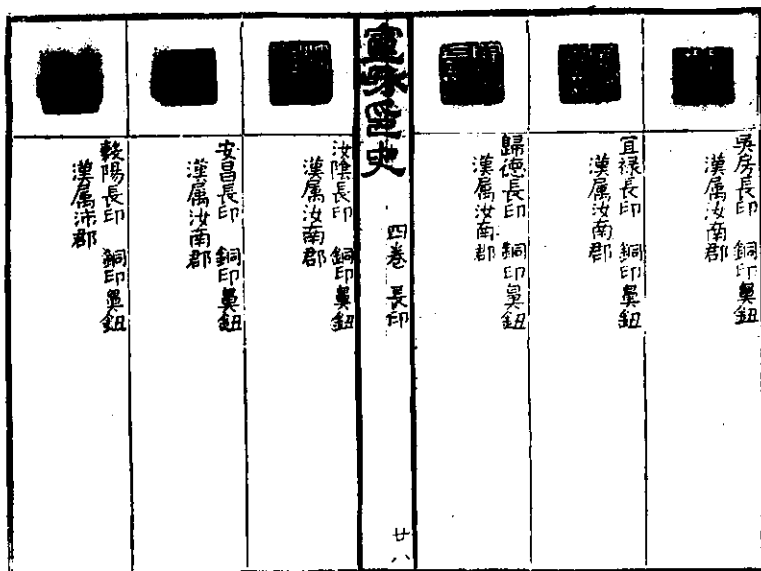 吳房長印 銅印鼻鈕
漢属汝南郡
宜禄長印 銅印鼻鈕
漢属汝南郡
歸徳長印 銅印鼻鈕
漢属汝南郡
四卷 長印
廿八
汝陰長印 銅印鼻鈕
漢属汝南郡
安昌長印 銅印鼻鈕
漢属汝南郡
穀陽長印 銅印鼻鈕
漢属沛郡